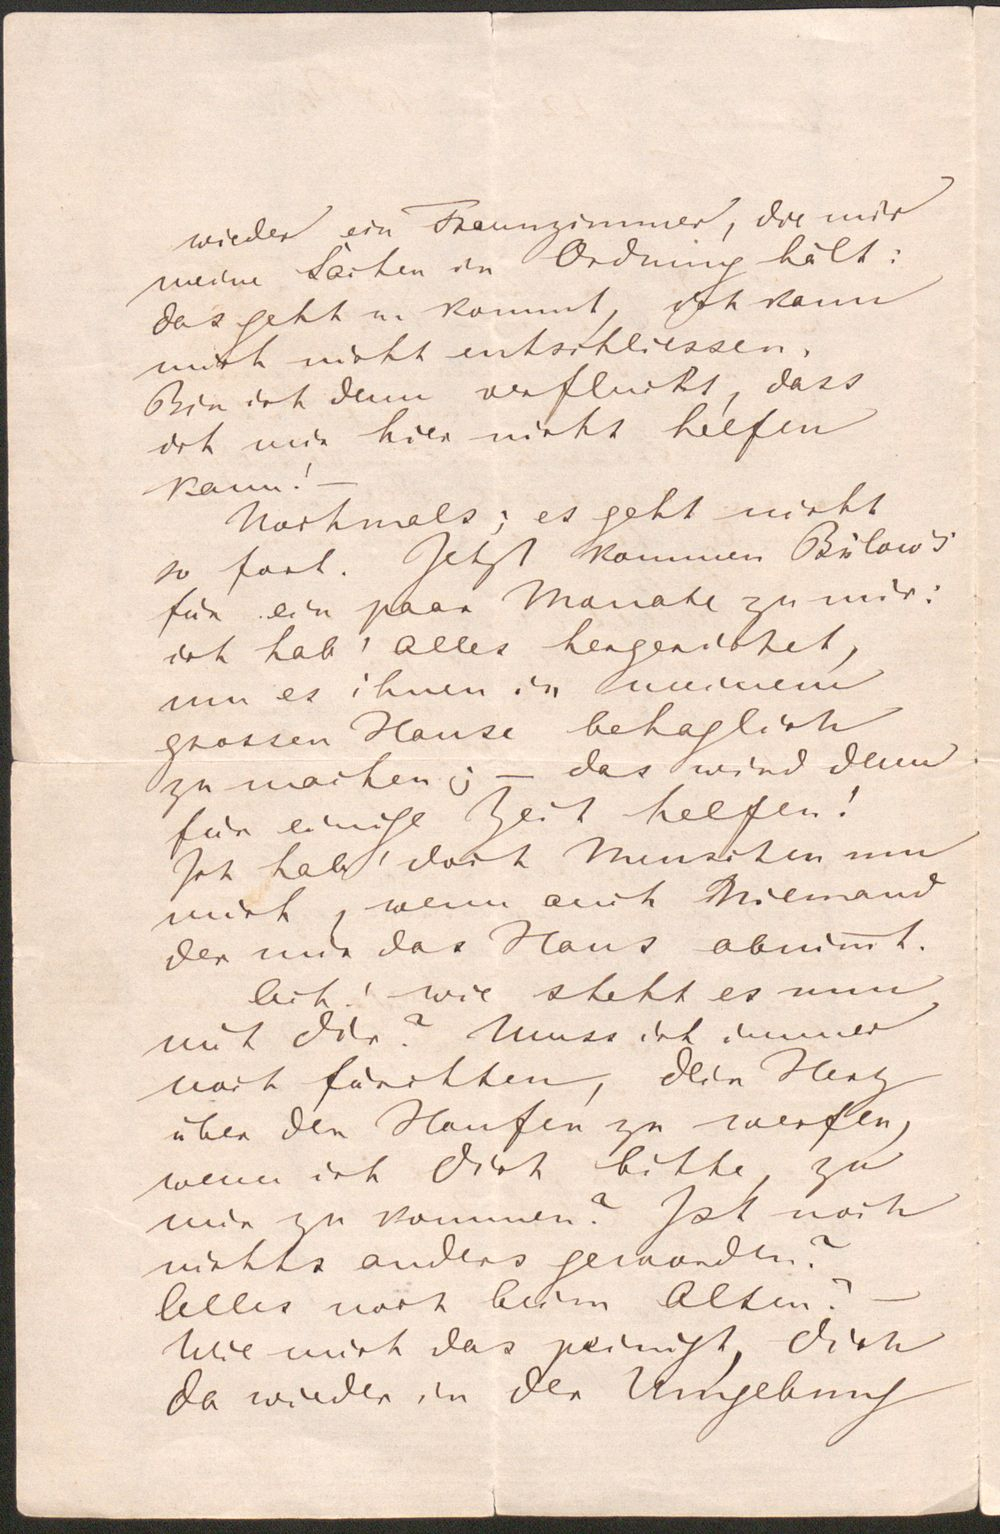 wieder ein Fraunzimmer, die mir
meine Sachen in Ordnung hält:
das geht u. kommt, ich kann
mich nicht entschliessen.
Bin ich denn verflucht, dass
ich mir hier nicht helfen
kann! —
Nochmals; es geht nicht
so fort. Jetzt kommen Bülow's
für ein paar Monate zu mir:
ich hab' Alles hergerichtet,
um es ihnen in meinem
grossen Hause behaglich
zu machen; — das wird denn
für einige Zeit helfen!
Ich hab' doch Menschen um
mich, wenn auch Niemand
der mir das Haus abnim̄t.
Ach! wie steht es nun
mit dir? Muss ich immer
noch fürchten, dein Herz
über den Haufen zu werfen,
wenn ich dich bitte, zu
mir zu kommen? Ist noch
nichts anders geworden?
Alles noch beim Alten? —
Wie mich das peinigt, dich
da wieder in der Umgebung